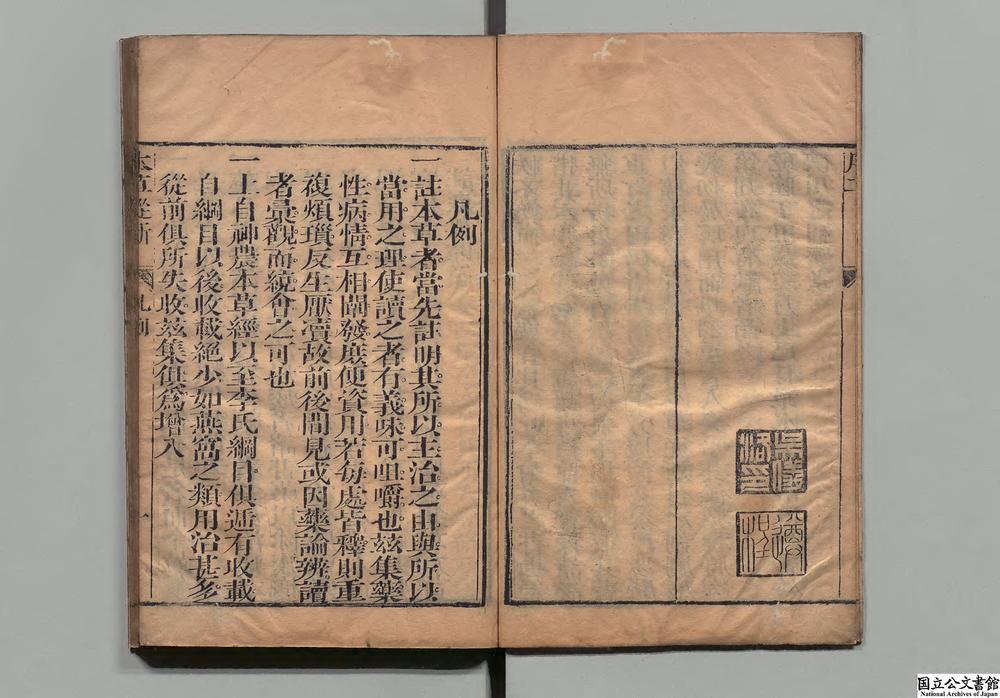 凡例
一註本草者當先註明其所以主治之由與所以
當用之理使讀之者有義味可咀嚼也茲集藥
性病情互相闡發庶便資用若每處皆釋則重
複煩瑣反生厭瀆故前後間見或因藥論辨讀
者彙觀而統會之可也
一上自神農本草經以至李氏綱目俱遞有收載
自綱目以後收載絕少如燕窩之類用治甚多
從前俱所失收茲集俱爲增入
本草從新
凡例
一
国立公文書館
National Archives of Japan